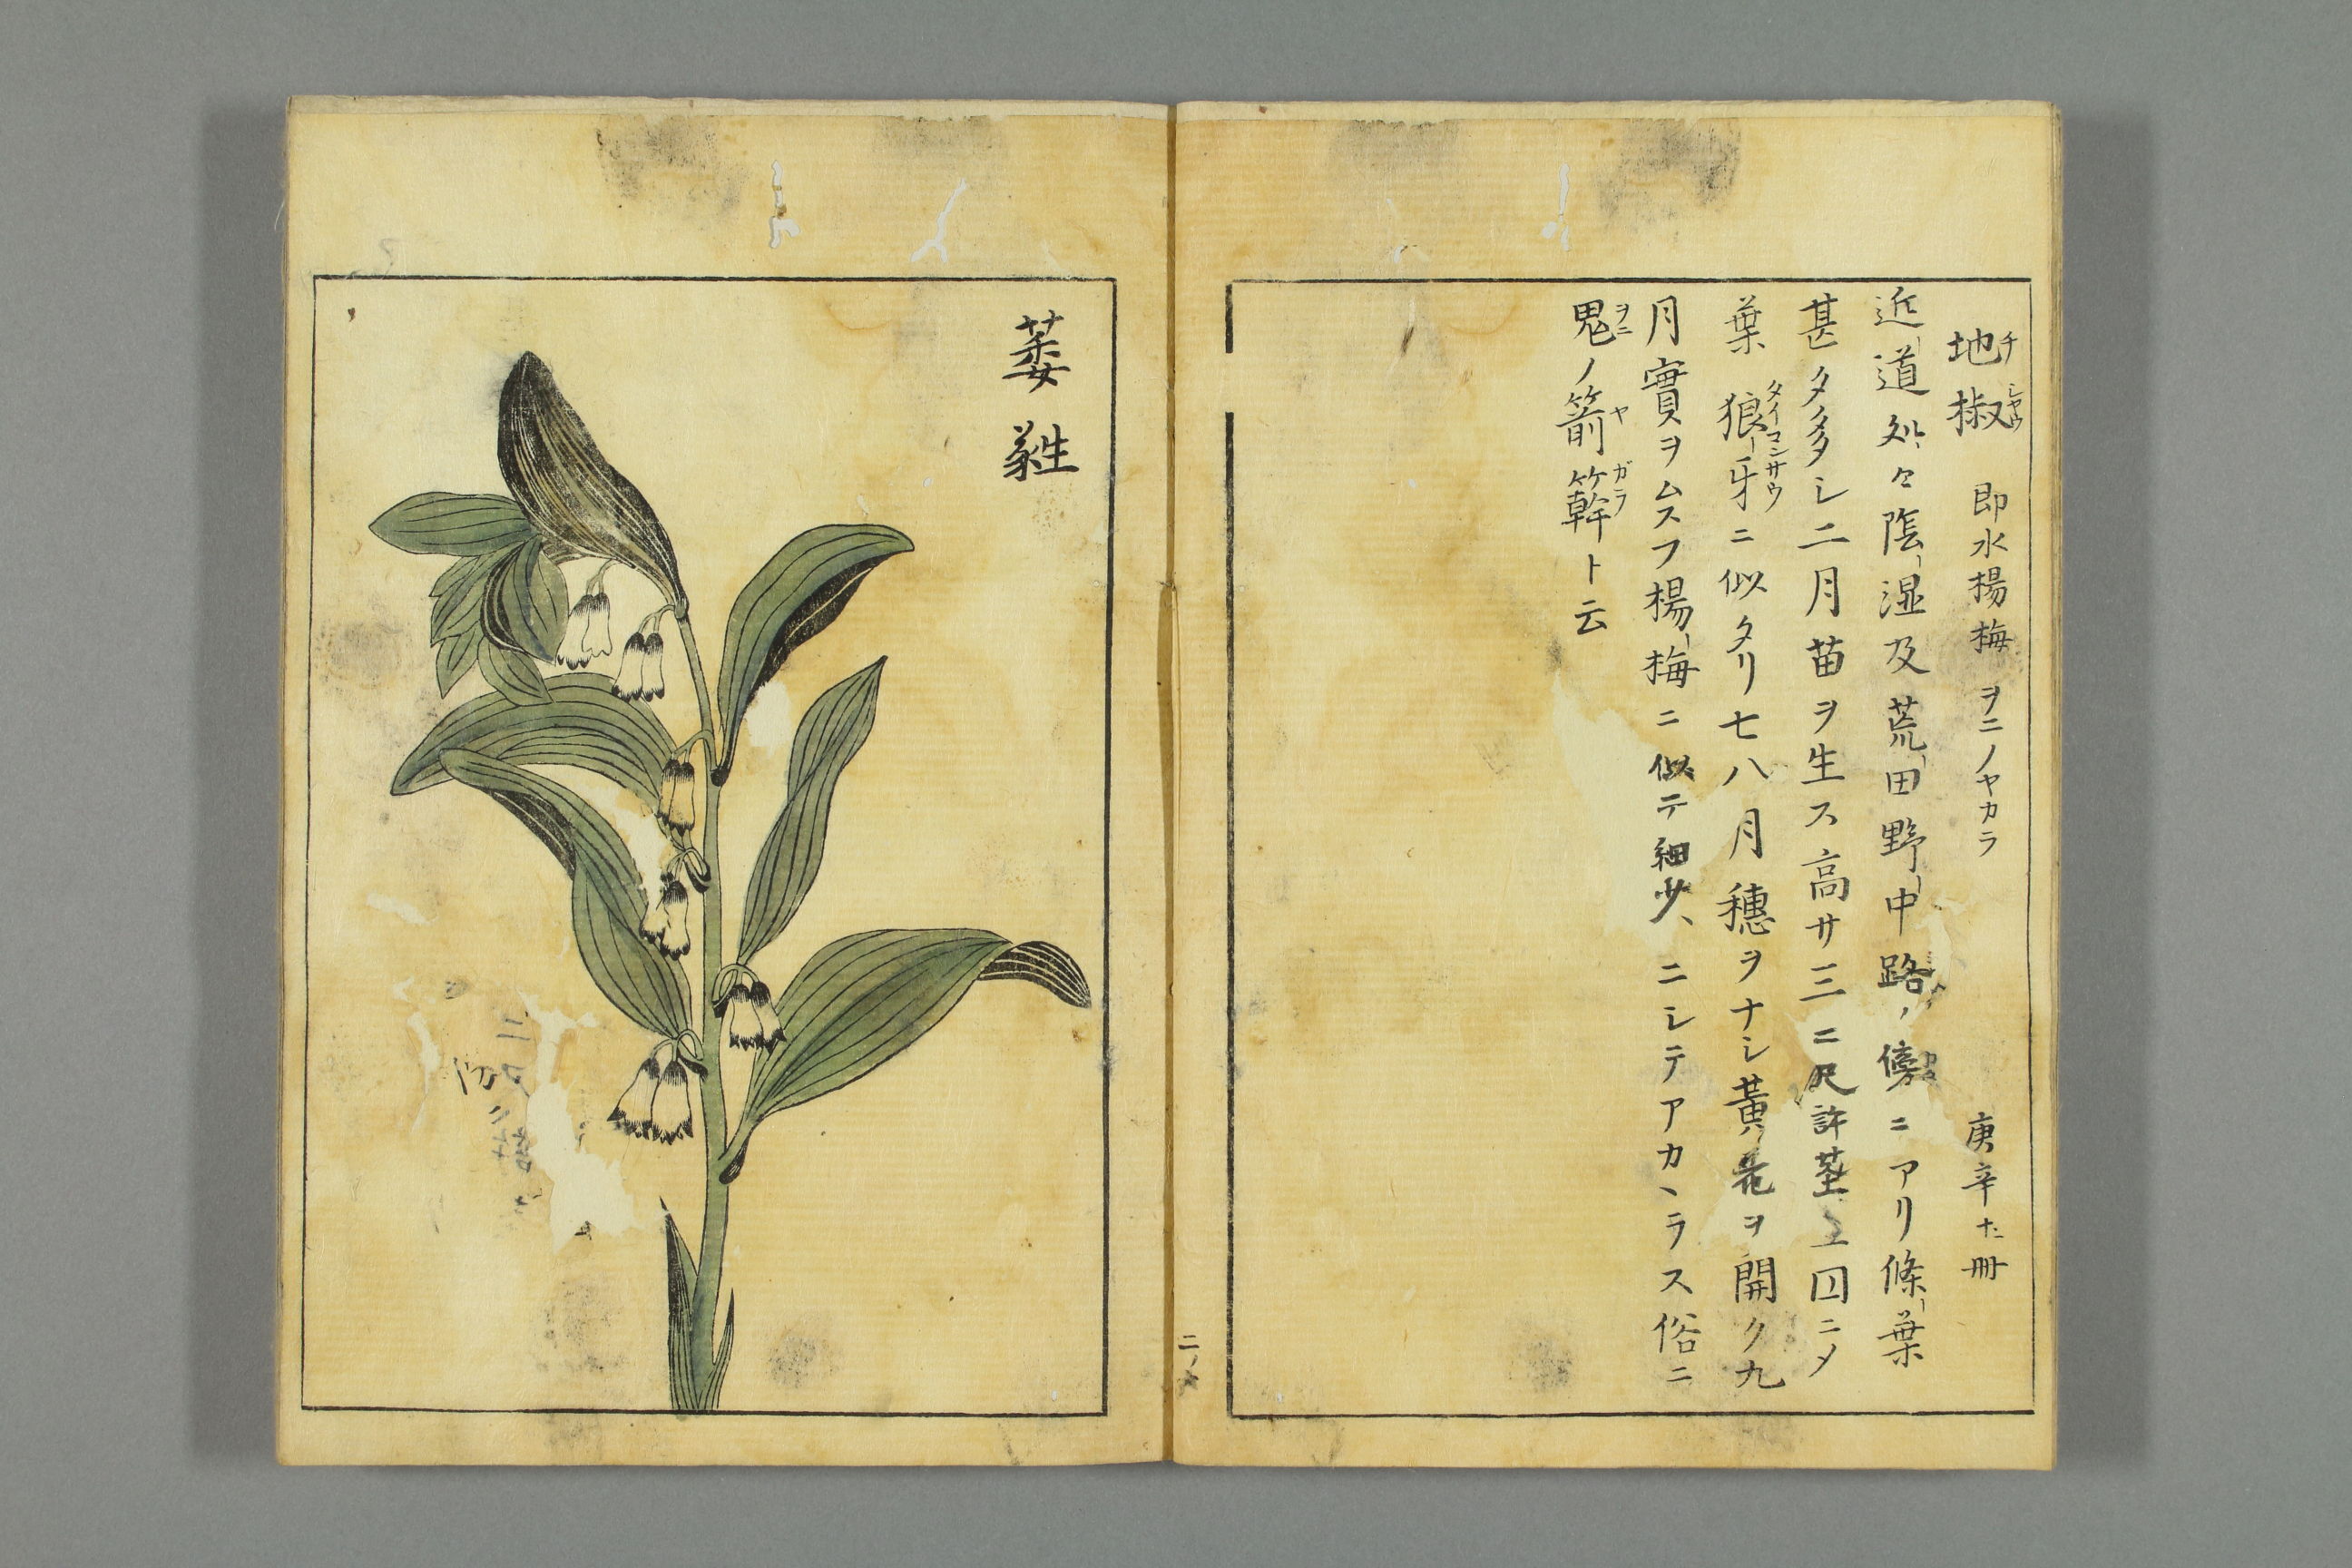 地椒 即水楊梅 ヲニノヤカラ 庚辛 十五冊
チシヤウ
近道処々陰湿及荒田野中路ノ傍ニアリ條葉
甚タ多シ二月苗ヲ生ス高サ三二尺許茎 四ニメ
葉狼牙ニ似タリ七八月穗ヲナシ黃花ヲ開ク九
タイコンサウ
月實ヲムスフ楊梅ニ似テ細少ニシテアカヽラス俗ニ
鬼ノ箭簳ト云
ヲニ ヤ ガラ
萎蕤